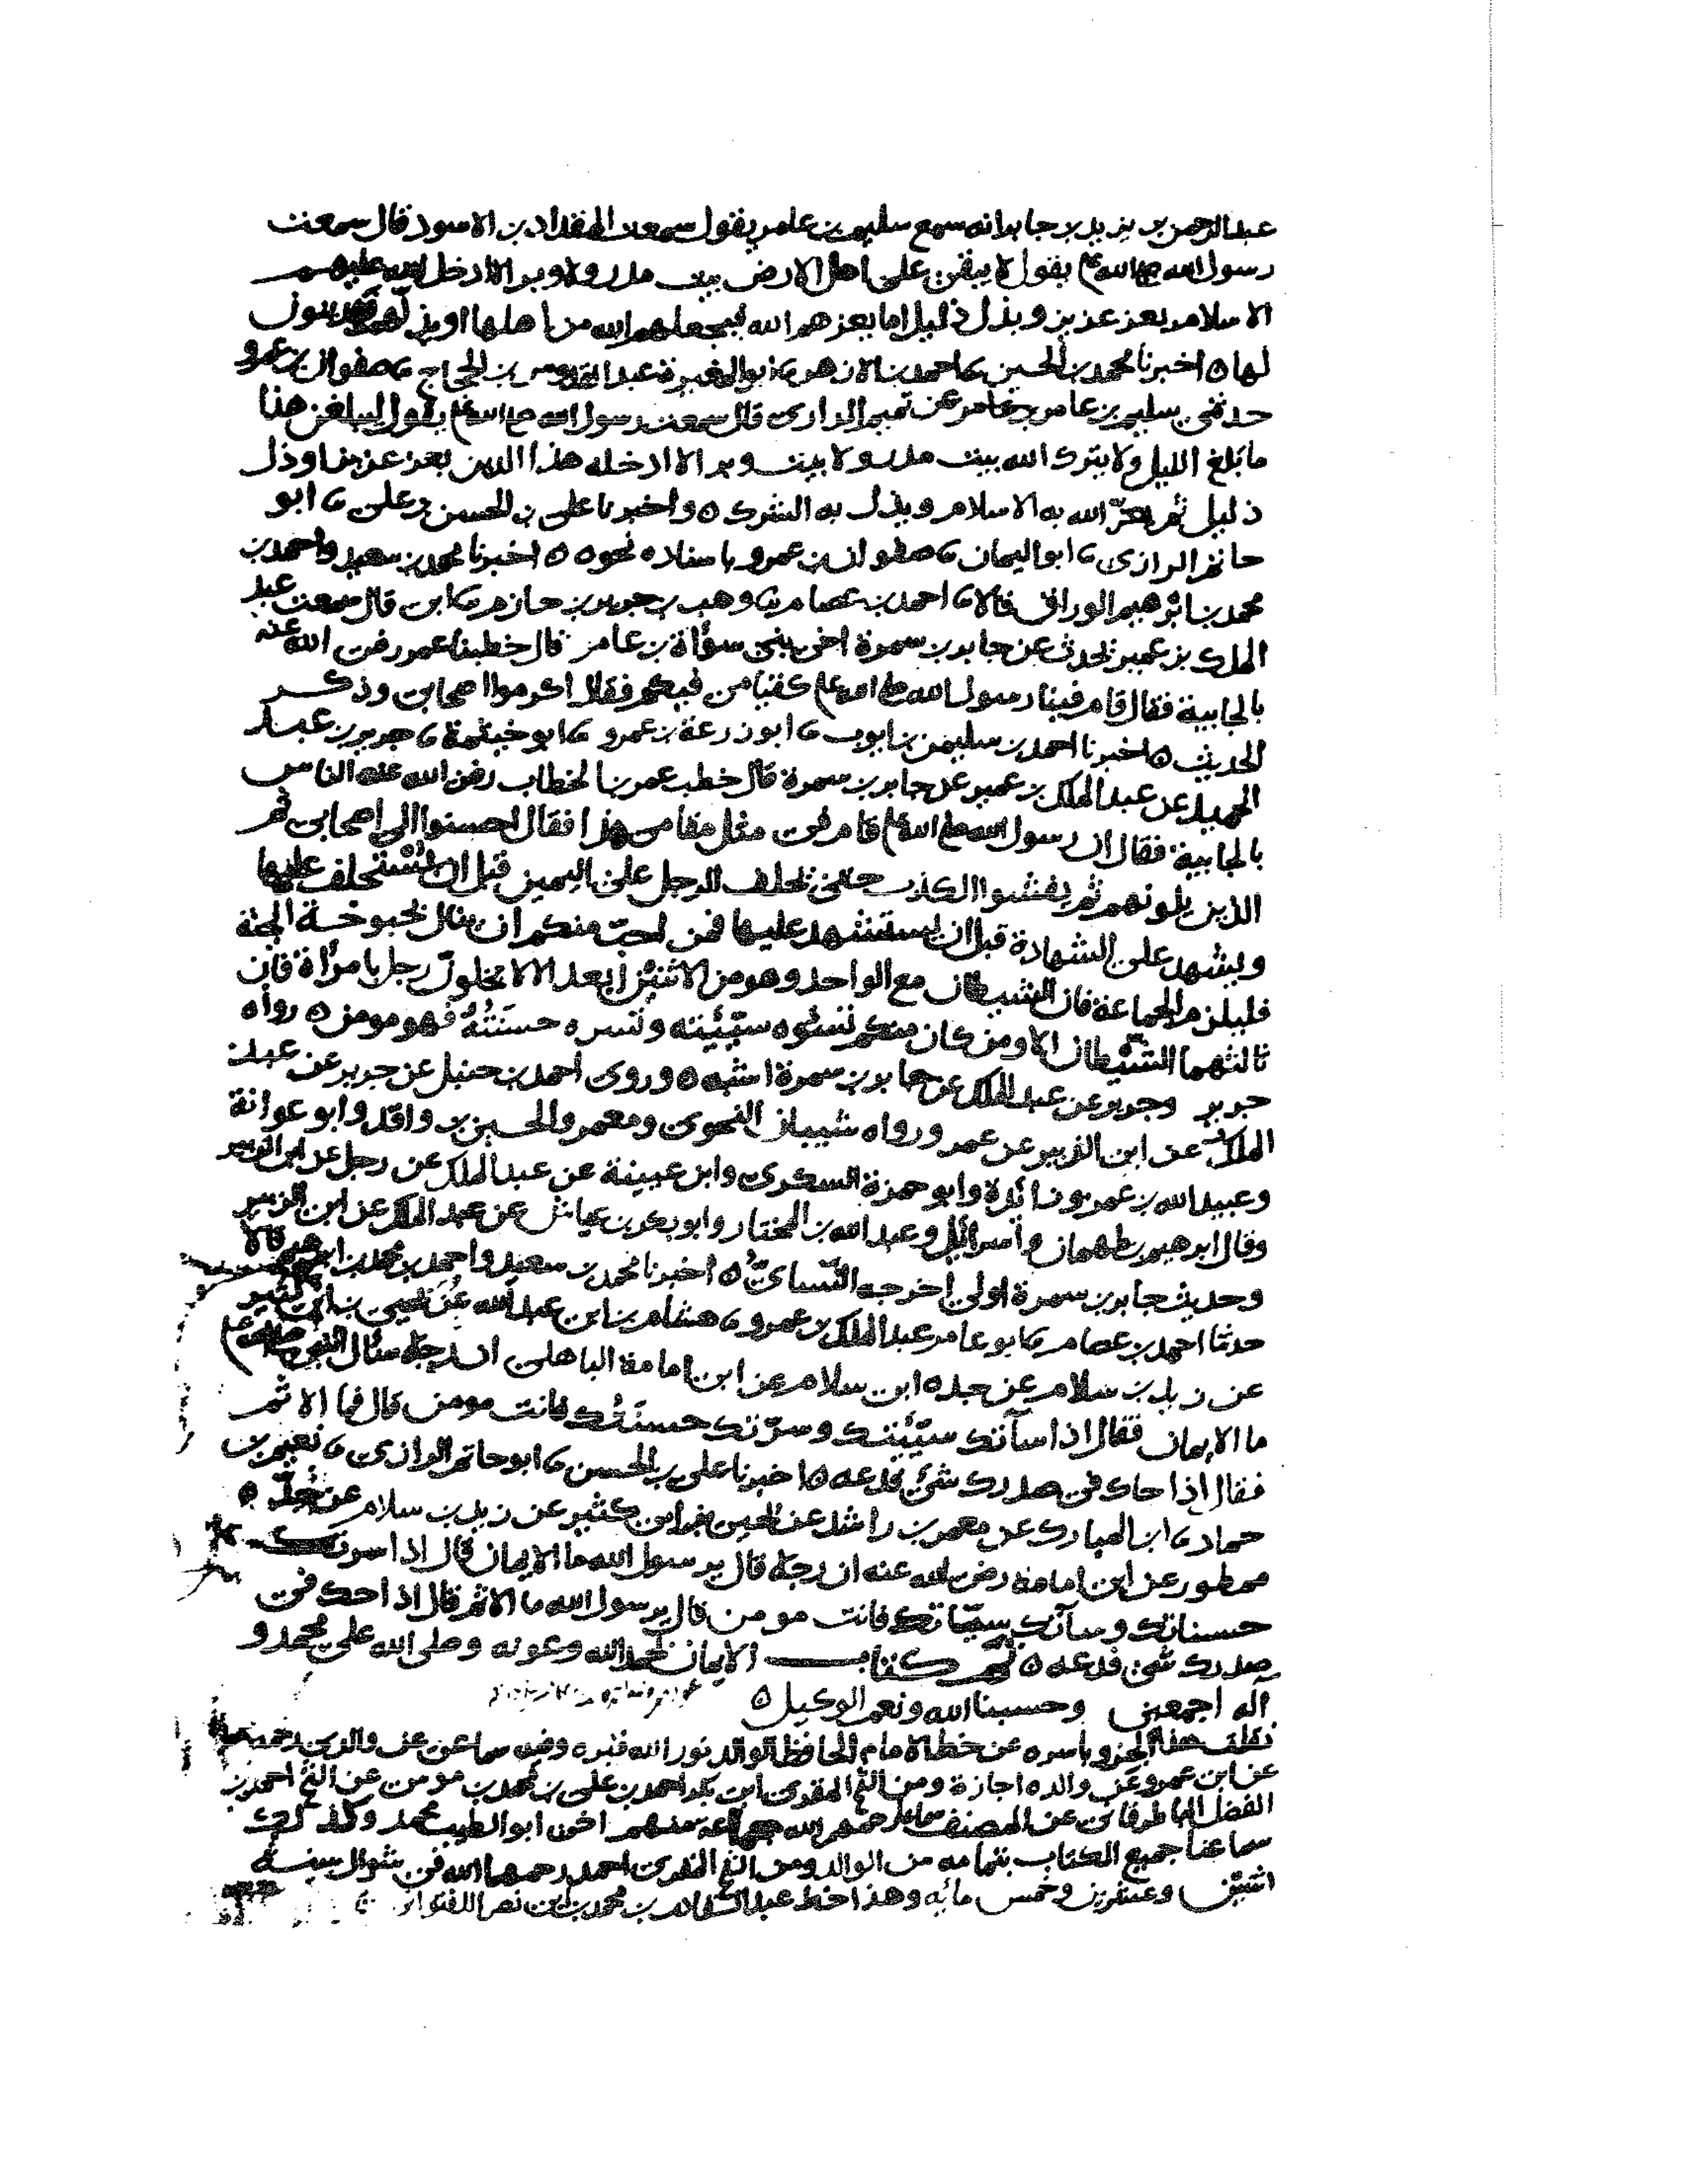 عبد الرحمن بن يزيد بن جابر انه سمع سليم بن عامر يقول سمعت المقداد بن الاسود قال سمعت
رسول الله صلى الله عليه يقول لا يبقين على اهل الارض بيت مدر ولا وبر الا ادخل الله عليهم
الاسلام بعز عزيز وبذل ذليل اما يعزهم الله فيجعلهم الله من اهلها او يذلهم فيدينون
لها ٥ اخبرنا محمد بن الحسين ثنا احمد بن الازهر ثنا ابو المغيرة عبد القدوس بن الحجاج ثنا صفوان بن عمرو
حدثني سليم بن عامر بن عامر عن تميم الداري قال سمعت رسول الله صلى الله عليه يقول ليبلغن هذا
ما بلغ الليل ولا يترك الله بيت مدر ولا بيت وبر الا ادخله هذا الدين بعز عزيز او ذل
ذليل ثم يعزّ الله به الاسلام ويذل به الشرك ٥ واخبرنا على بن الحسن بن على ثنا ابو
حاتم الرازى ثنا ابو اليمان ثنا صفوان بن عمرو باسناده نحوه ٥ اخبرنا محمد بن سعيد واحمد بن
محمد بن ابرهيم الوراق قالا ثنا احمد بن عصام ثنا وهب بن جرير بن حازم ثنا ابى قال سمعت عبد
الملك بن عمير يحدث عن جابر بن سمرة اخى بنى سؤاة بن عامر قال خطبنا عمر رضى الله عنه
بالجابية فقال قام فينا رسول الله صلى الله عليه كقيامى فيكم فقال اكرموا اصحابى وذكر
الحديث ٥ اخبرنا احمد بن سليمن بن ايوب ثنا ابو زرعة بن عمرو ثنا ابو خيثمة ثنا جرير بن عبد
الحميد عن عبد الملك بن عمير عن جابر بن سمرة قال خطب عمر بن الخطاب رضى الله عنه الناس
بالجابية فقال ان رسول الله صلى الله عليه قام فى مثل مقامى هذا فقال احسنوا الى اصحابى ثم
الذين يلونهم ثم يفشوا الكذب حتى يحلف الرجل على اليمين قبل ان يُسْتحلف عليها
ويشهد على الشهادة قبل ان يستشهد عليها فمن احبّ منكم ان ينال بحبوحة الجنة
فليلزم الجماعة فان الشيطان مع الواحد وهو من الاثنين ابعد الا لا يخلونّ رجل بامرأة فان
ثالثهما الشيطان الا ومن كان منكم تسئوه سيّئته وتسره حسنَتُهُ فهو مومن ٥ رواه
جرير وجرير عن عبد الملك عن جابر بن سمرة اشبه ٥ وروى احمد بن حنبل عن جرير عن عبد
الملك عن ابن الزبير عن عمر ورواه شيبان النحوى ومعمر والحسين بن واقد وابو عوانة
وعبيد الله بن عمر وزائدة وابو حمزة السكرى وابن عيينة عن عبد الملك عن رجل عن ابن الزبير
وقال ابرهيم بن طهمان واسرائيل وعبد الله بن المختار وابو بكر بن عياش عن عبد الملك عن ابن الزبير
وحديث جابر بن سمرة اولى اخرجه النسائىّ ٥ اخبرنا محمد بن سعيد واحمد بن محمد بن ابرهيم قالا
حدثنا احمد بن عصام ثنا ابو عامر عبد الملك بن عمرو ثنا هشام بن ابى عبد الله عن يحيى بن ابى كثير
عن زيد بن سلام عن جده ابى سلام عن ابى امامة الباهلى ان رجلا سال النبى صلى الله عليه
ما الايمان فقال اذا سآتك سيّئتك وسرّتك حسنَتُك فانت مومن قال فما الاثم
فقال اذا حاك فى صدرك شئ فدعه ٥ اخبرنا على بن الحسن ثنا ابو حاتم الرازى ثنا نعيم بن
حماد ثنا ابن المبارك عن معمر بن راشد عن يحيى بن ابى كثير عن زيد بن سلام عن جدّه
ممطور عن ابى امامة رضى الله عنه ان رجلا قال يرسول الله ما الايمان قال اذا سرتك
حسناتك وسآتك سيّآتك فانت مومن قال يرسول الله ما الاثم قال اذا حك فى
صدرك شئ فدعه ٥ تم كتاب الايمان بحمد الله وعونه وصلى الله على محمد و
آله اجمعين وحسبنا الله ونعم الوكيل ٥
نقلت هذا الجزو باسره من خط الامام الحافظ الوالد نور الله قبره وفيه سماعى عن والدى رحمه
عن ابى عمرو عن والده اجازة ومن الشيخ المقرى ابى بكر احمد بن على بن محمد بن مومن عن الشيخ احمد بن
الفضل الباطرقانى عن المصنف رحمهم الله جماعة منهم اخى ابو الطيب محمد وكذلك
سماعنا جميع الكتاب بتمامه من الوالد ومن الشيخ المقرى احمد رحمهما الله فى شوال سنة
اثنتين وعشرين وخمس مائه وهذا خط عبد بن محمد بن نصر